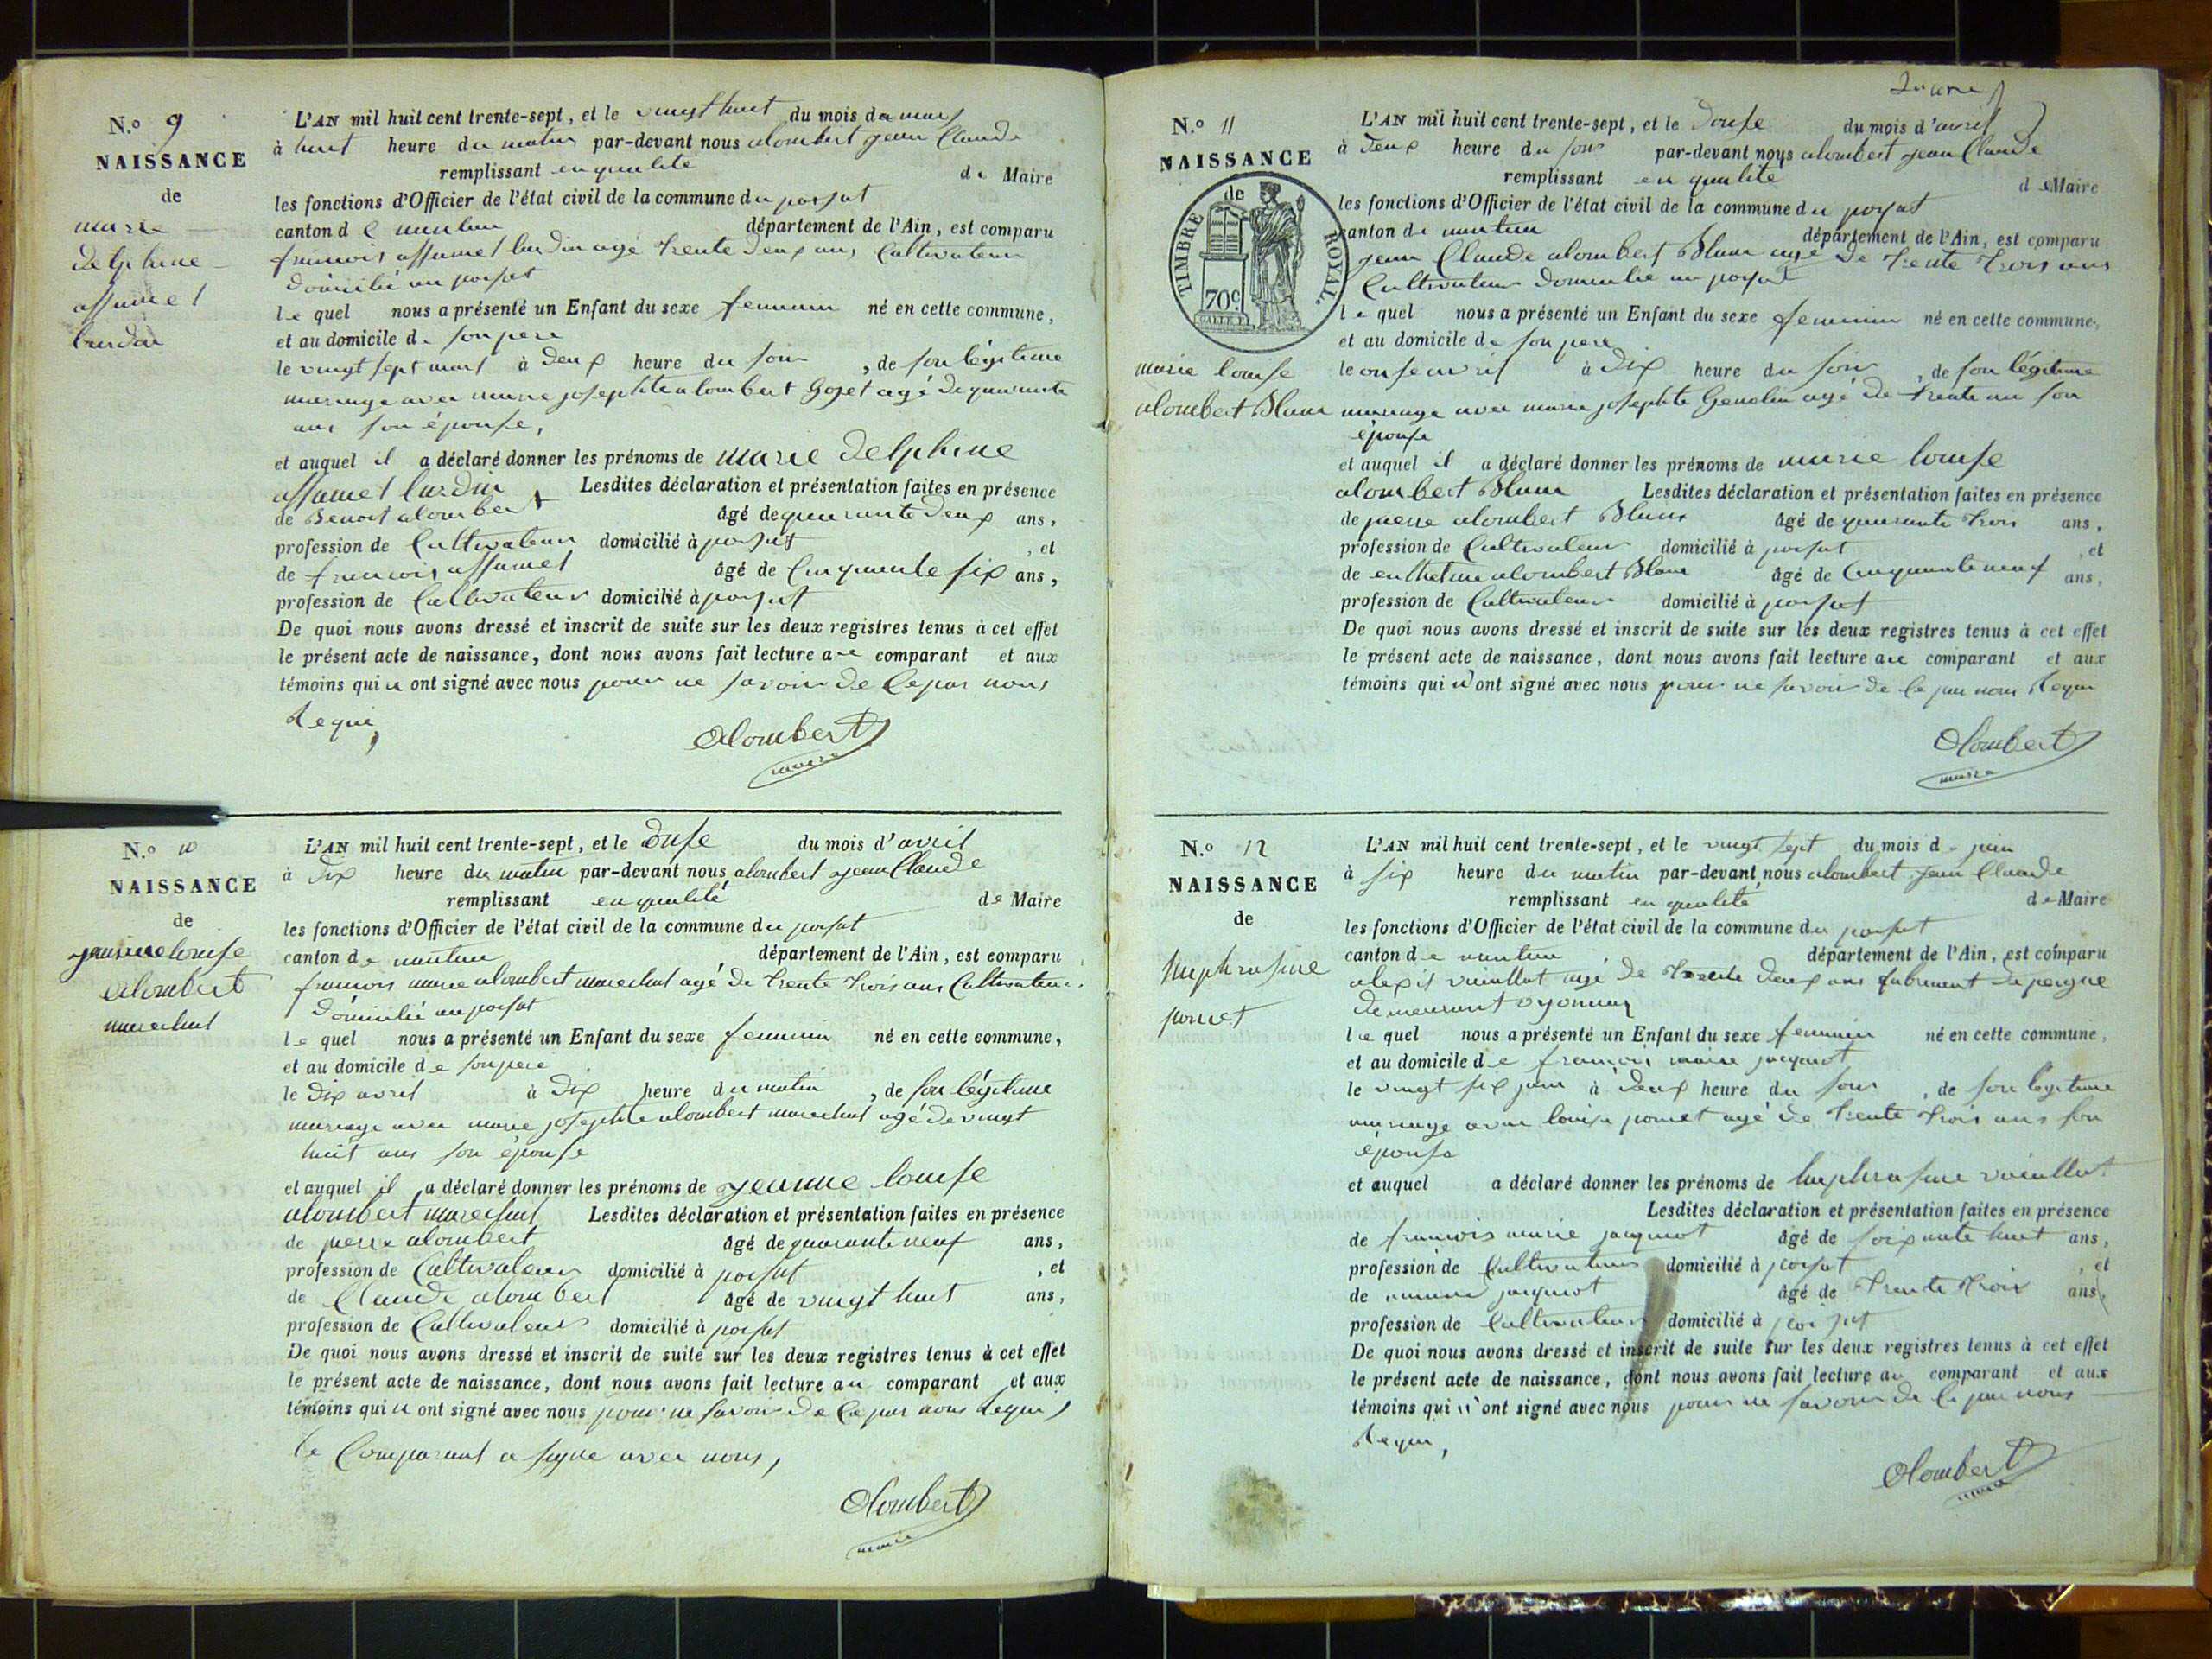 N.o 9
NAISSANCE
de
marie
delphine
assumel
lurdin
L'AN mil huit cent trente-sept, et le vingt huit du mois de mars
à huit heure du matin par-devant nous alombert jean Claude
remplissant en qualité de Maire
les fonctions d'Officier de l'état civil de la commune du poisat
canton de nantua département de l'Ain, est comparu
francois assumel lurdin agé trente deux ans Cultivateur
domicilié au poisat
lequel nous a présenté un Enfant du sexe feminin né en cette commune,
et au domicile de son pere
le vingt sept mars à deux heure du soir, de son légitime
mariage avec marie josephte alombert Goget agé de quarante
ans son épouse,
et auquel il a déclaré donner les prénoms de marie delphine
assumel lurdin Lesdites déclaration et présentation faites en présence
de Benoit alombert âgé de quarante deux ans,
profession de Cultivateur domicilié à poisat, et
de francois assumel âgé de Cinquante six ans,
profession de Cultivateur domicilié à poisat
De quoi nous avons dressé et inscrit de suite sur les deux registres tenus à cet effet
le présent acte de naissance, dont nous avons fait lecture au comparant et aux
témoins qui n ont signé avec nous pour ne savoir de Ce par nous
Requi,
Alombert
maire
N.o 10
NAISSANCE
de
jeanne louise
alombert
marechal
L'AN mil huit cent trente-sept, et le onse du mois d'avril
à dix heure du matin par-devant nous alombert jean Claude
remplissant en qualité de Maire
les fonctions d'Officier de l'état civil de la commune du poisat
canton de nantua département de l'Ain, est comparu
francois marie alombert marechal agé de trente trois ans Cultivateur
domicilié au poisat
lequel nous a présenté un Enfant du sexe feminin né en cette commune,
et au domicile de son pere
le dix avril à dix heure du matin, de son légitime
mariage avec marie josephte alombert marechal agé de vingt
huit ans son épouse
et auquel il a déclaré donner les prénoms de jeanne louise
alombert marechal Lesdites déclaration et présentation faites en présence
de pierre alombert âgé de quarante neuf ans,
profession de Cultivateur domicilié à poisat, et
de Claude alombert âgé de vingt huit ans,
profession de Cultivateur domicilié à poisat
De quoi nous avons dressé et inscrit de suite sur les deux registres tenus à cet effet
le présent acte de naissance, dont nous avons fait lecture au comparant et aux
témoins qui n ont signé avec nous pour ne savoir de Ce par nous Requi
le Comparant a signe avec nous,
Alombert
maire
N.o 11
NAISSANCE
de
TIMBRE ROYAL.
70c
marie louise
alombert Blanc
L'AN mil huit cent trente-sept, et le douse du mois d'avril
à deux heure du soir par-devant nous alombert jean Claude
remplissant en qualité de Maire
les fonctions d'Officier de l'état civil de la commune du poisat
canton de nantua département de l'Ain, est comparu
jean Claude alombert Blanc agé de trente trois ans
Cultivateur domicilié au poisat
lequel nous a présenté un Enfant du sexe feminin né en cette commune,
et au domicile de son pere
le onse avril à dix heure du soir, de son légitime
mariage avec marie josephte Genolin agé de trente an son
épouse
et auquel il a déclaré donner les prénoms de marie louise
alombert Blanc Lesdites déclaration et présentation faites en présence
de pierre alombert Blanc âgé de quarante trois ans,
profession de Cultivateur domicilié à poisat, et
de alombert Blanc âgé de Cinquante neuf ans,
profession de Cultivateur domicilié à poisat
De quoi nous avons dressé et inscrit de suite sur les deux registres tenus à cet effet
le présent acte de naissance, dont nous avons fait lecture au comparant et aux
témoins qui n'ont signé avec nous pour ne savoir de Ce par nous Requi
Alombert
maire
N.o 12
NAISSANCE
de
poncet
L'AN mil huit cent trente-sept, et le vingt sept du mois de juin
à six heure du matin par-devant nous alombert jean Claude
remplissant en qualité de Maire
les fonctions d'Officier de l'état civil de la commune du poisat
canton de nantua département de l'Ain, est comparu
alexis vuiellat agé de trente deux ans fabricant de peigne
demeurant oyonnax
lequel nous a présenté un Enfant du sexe feminin né en cette commune,
et au domicile de francois marie jacquiot
le vingt six juin à deux heure du soir, de son légitime
mariage avec louise poncet agé de trente trois ans son
épouse
et auquel a déclaré donner les prénoms de vuiellat
Lesdites déclaration et présentation faites en présence
de francois marie jacquiot âgé de soixante huit ans,
profession de Cultivateur domicilié à poisat, et
de jacquiot âgé de trente trois ans,
profession de Cultivateur domicilié à poisat
De quoi nous avons dressé et inscrit de suite sur les deux registres tenus à cet effet
le présent acte de naissance, dont nous avons fait lecture au comparant et aux
témoins qui n'ont signé avec nous pour ne savoir de Ce par nous
Requi,
Alombert
maire